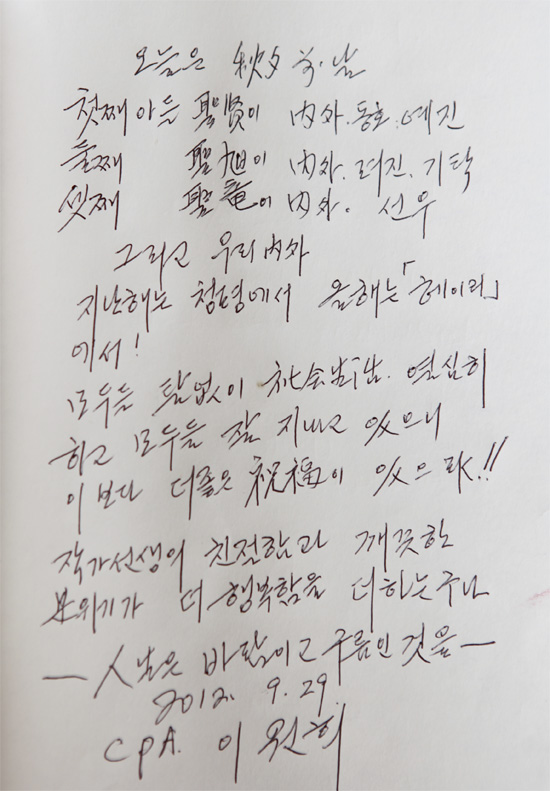 오늘은 秋夕 前날
첫째 아들 聖賢이 內外. 동호. 예진
둘째 聖旭이 內外. 려진. 기탁
셋째 聖竜이 內外. 선우
그리고 우리 內外
지난해는 청평에서 올해는「헤이리」
에서!
모두들 탈없이 社会生活. 열심히
하고 모두들 잘 지내고 있으니
이보다 더좋은 祝福이 있으랴!!
작가선생의 친절함과 깨끗한
분위기가 더 행복함을 더하는구나
— 人生은 바람이고 구름인 것을 —
2012. 9. 29.
CPA. 이원희